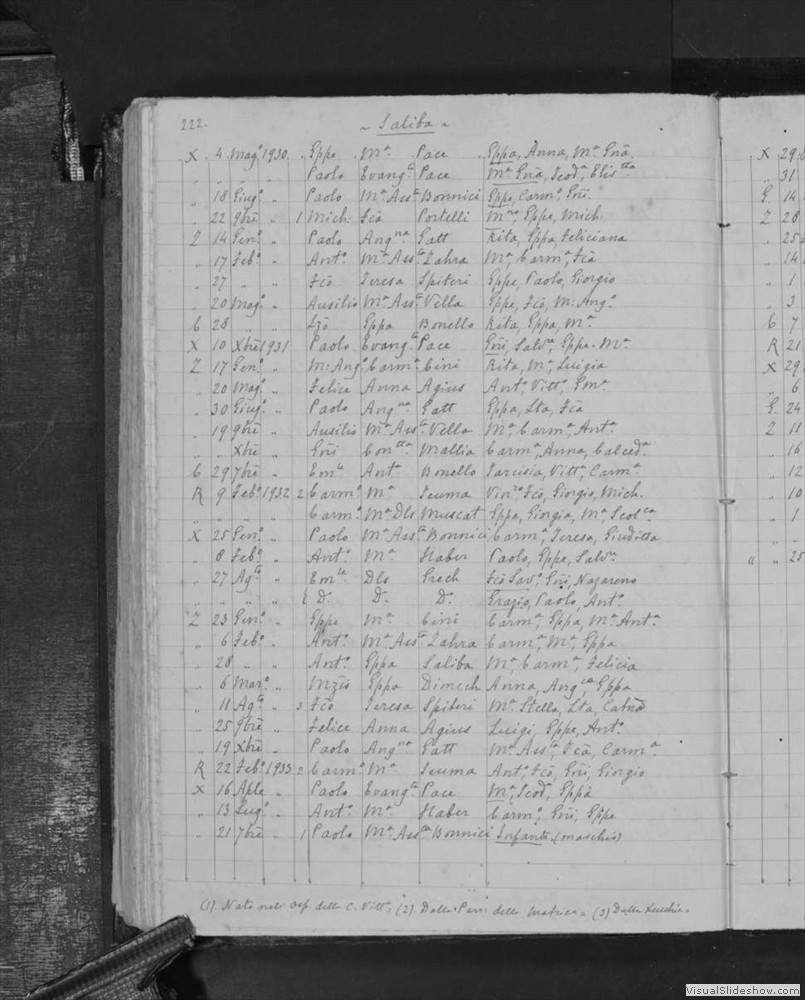 222. ~ Saliba ~
X 4 Magº 1930 Eppe Mª Pace Eppa, Anna, Mª Gnã.
" " " " Paolo Evangᵗᵃ Pace Mª Gnã, Teodª Elisᵗᵗᵃ
" 18 Giugº " Paolo Mª Assᵗᵃ Bonnici Eppe, Carmº, Gni.
" 22 9brē " 1 Mich. Fcã Portelli Mⁿᵒ Eppe, Mich.
Z 14 Genº " Paolo Angⁿᵃ Gatt Rita, Eppa, Feliciana
" 17 Febº " Antº Mª Assᵗᵃ Zahra Mª, Carmª, Fcã
" 27 " " Fcõ Teresa Spiteri Eppe, Paolo, Giorgio
" 20 Magº " Ausilio Mª Assᵗᵃ Vella Eppe, Fcõ, M. Angº
G 28 " " Lzõ Eppa Bonello Rita, Eppa, Mª
X 10 Xbrē 1931 Paolo Evangᵗᵃ Pace Gni, Salvª, Eppe. Mª
Z 17 Genº " M. Angº Carmª Cini Rita, Mª, Luigia
" 20 Magº " Felice Anna Agius Antº, Vittº, Emª
" 30 Giugº " Paolo Angⁿᵃ Gatt Eppa, Lta, Fcã
" 19 9brē " Ausilio Mª Assᵗᵃ Vella Mª, Carmª, Antª
" " Xbrē " Gni Conᵗᵗᵃ Mallia Carmª, Anna, Calcedª
G 29 7brē " Emˡᵉ Antª Bonello Tarcisia, Vittª, Carmª
R 9 Febº 1932 2 Carmº Mª Teuma Vinᶻᵒ Fcõ, Giorgio, Mich.
" " " " Carmº Mª Dls Muscat Eppa, Giorgia, Mª Scolᶜᵃ
X 25 Genº " Paolo Mª Assᵗᵃ Bonnici Carmª, Teresa, Giuditta
" 8 Febº " Antº Mª Haber Paolo, Eppe, Salvʳᵉ
" 27 Agᵗᵒ " Emˡᵉ Dls Grech Fcõ Savº, Gni, Nazareno
" " " " D. D. D. Grazio, Paolo, Antº
Z 23 Genº " Eppe Mª Cini Carmª, Eppa, Mª Antª
" 6 Febº " Antº Mª Assᵗᵃ Zahra Carmª, Mª, Eppa
" 28 " " Antº Eppa Saliba Mª, Carmª, Felicia
" 6 Marº " Mzis Eppa Dimech Anna, Angᶜᵃ, Eppa
" 11 Agᵗᵒ " 3 Fcõ Teresa Spiteri Mª Stella, Lta, Catnã
" 25 9brē " Felice Anna Agius Luigi, Eppe, Antº
" 19 Xbrē " Paolo Angⁿᵃ Gatt Mª Assᵗᵃ, Fcã, Carmª
R 22 Febº 1933 2 Carmº Mª Teuma Antº, Fcõ, Gni, Giorgio
X 16 Aple " Paolo Evangᵗᵃ Pace Mª, Teodª, Eppa
" 13 Lugº " Antº Mª Haber Carmº, Gni, Eppe
" 21 7brē " 1 Paolo Mª Assᵗᵃ Bonnici Infante (maschio)
(1) Nato nell' Osp. della C. Vittª = (2) Dalla Parr. della Matrice = (3) Dalla
X 29
" 31
G. 14
Z 28
" 25
" 14
" 1
" 3
G 7
R 21
X 29
" 6
G. 24
Z 11
" 16
" 12
" 10
" 1
" 25
VisualSlideshow.com